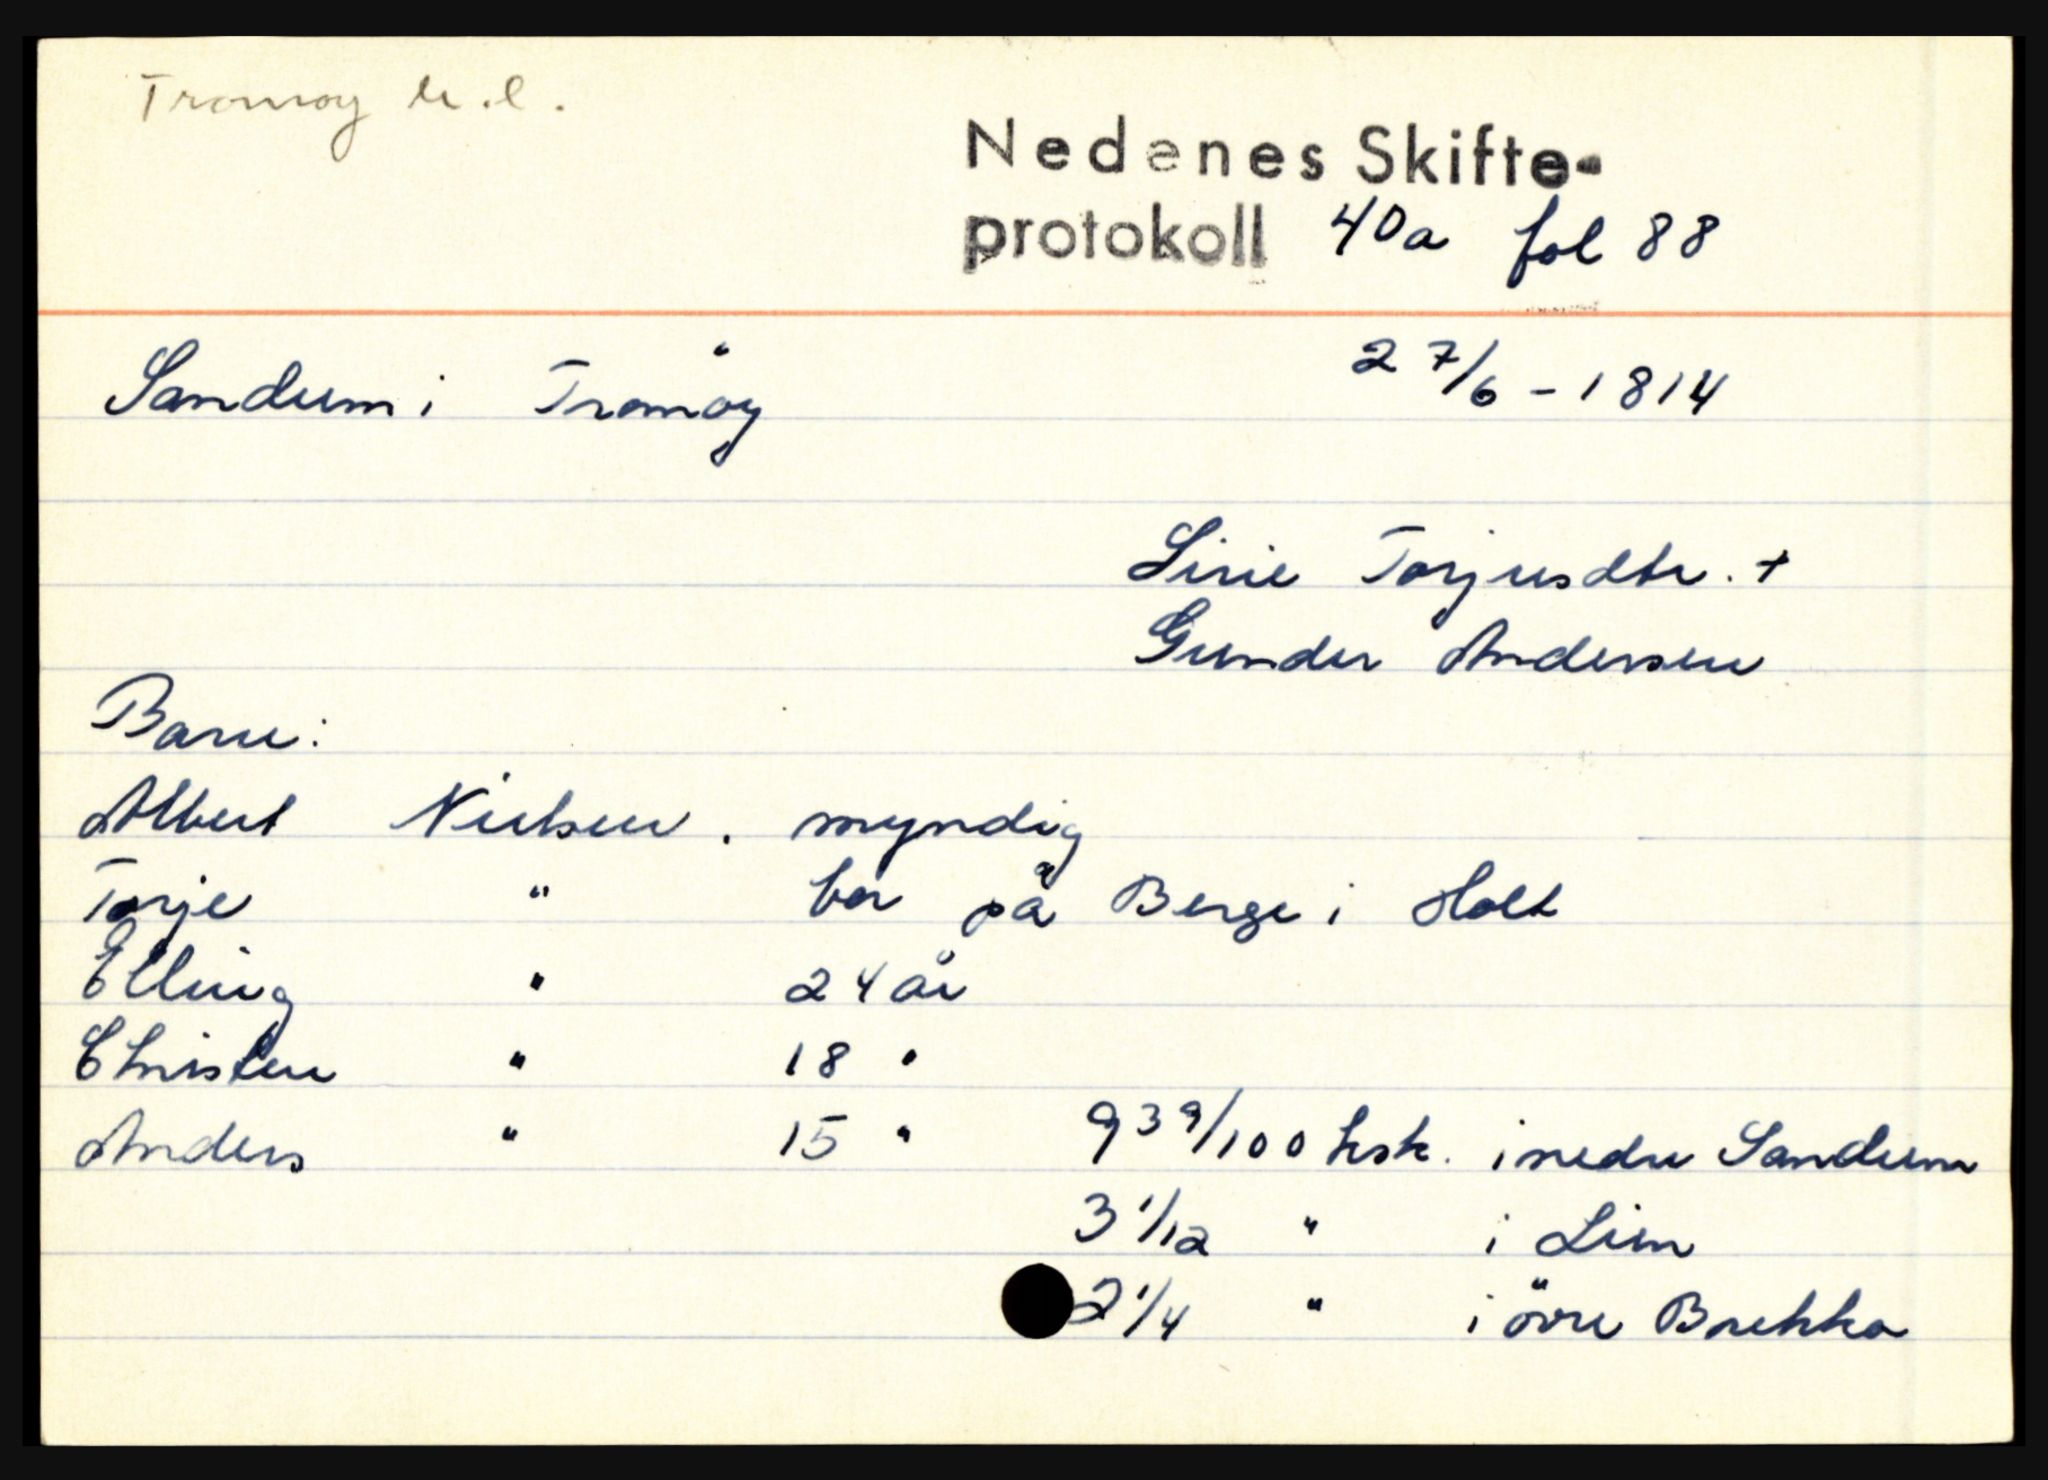 Tromøy u.l.
Nedenes Skifte-
protokoll 40a fol 88
Sandum i Tromöy 27/6 - 1814
Sirie Torjusdtr. +
Gunder Andersen
Barn:
Albert Nielsen. myndig
Torje " bor på Berge i Holt
Elling " 24 år
Christen " 18 "
Anders " 15 " 9 39/100 hsk. i nedre Sandum
3 1/12 " i Lien
2 1/4 " i övre Brekka